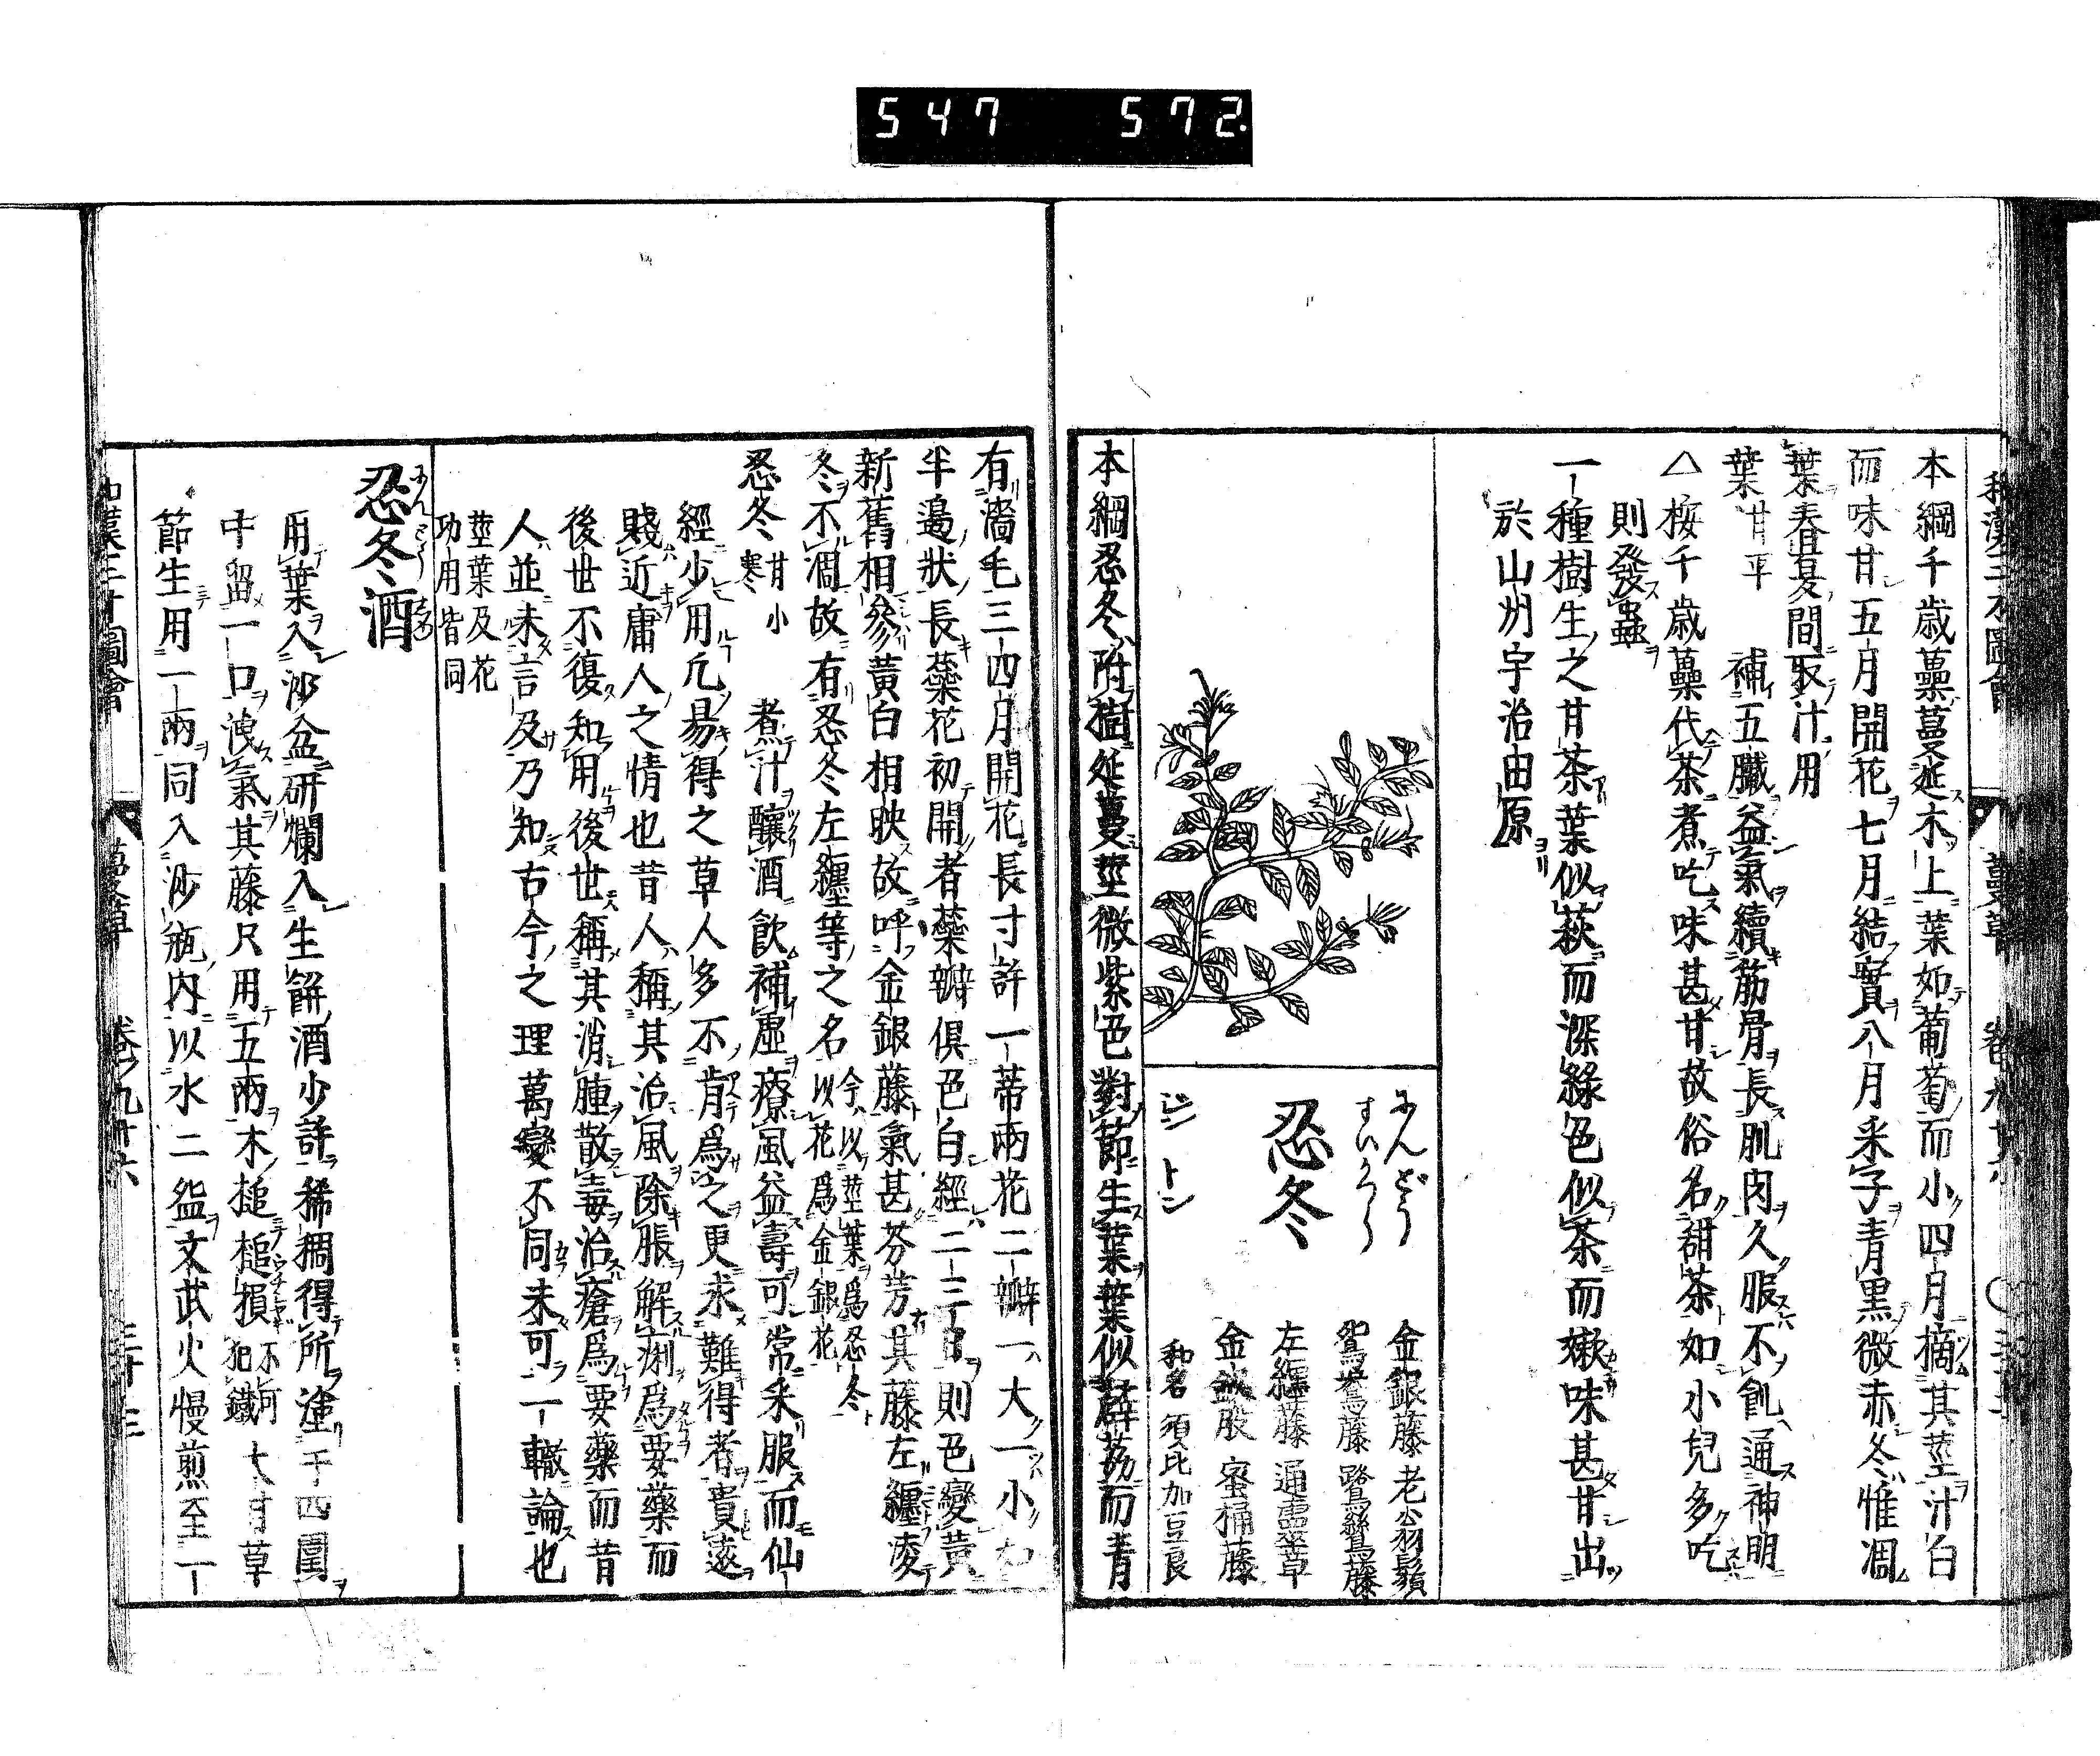 547 572
和漢三才圖會 蔓草 卷九十六
本綱千歳虆蔓延木上葉如葡萄而小四月摘其莖汁白
而味甘五月開花七月結實八月采子青黒微赤冬惟凋
葉春夏間取汁用
葉甘平 補五臟益氣續筋骨長肌肉久服不飢通神明
△按千歳虆代茶煮吃味甚甘故俗名甜茶如小兒多吃
則發蟲
一種樹生之甘茶葉似萩而深綠色似茶而嫩味甚甘出
於山州宇治由原
にんどう
すいかつら
忍冬
ジン トン
金銀藤 老翁鬚
鴛鴦藤 鷺鷥藤
左纏藤 通靈草
金釵股 蜜桶藤
和名 須比加豆良
本綱忍冬附樹延蔓莖微紫色對節生葉葉似薜茘而青
有濇毛三四月開花長寸許一蒂兩花二瓣一大一小如
半邊狀長蘂花初開者蘂瓣倶色白經二三日則色變黄
新舊相參黄白相映故呼金銀藤氣甚芬芳其藤左纏凌
冬不凋故有忍冬左纏等之名
今以莖葉爲忍冬
以花爲金銀花
忍冬
甘小
寒
煮汁釀酒飲補虛療風益壽可常采服而仙
經少用凢易得之草人多不肯爲之更求難得者貴遠
賤近庸人之情也昔人稱其治風除脹解痢爲要藥而
後世不復知用後世稱其消腫散毒治瘡爲要藥而昔
人並未言及乃知古今之理萬變不同未可一轍論也
莖葉及花
功用皆同
にんどうしゆ
忍冬酒
用葉入沙盆研爛入生餅酒少許稀稠得所塗于四圍
中留一口洩氣其藤只用五兩木槌槌損
不可
犯鐵
大甘草
節生用一兩同入沙瓶内以水二盌文武火慢煎至一
和漢三才圖會 蔓草 卷ノ九十六 三十三